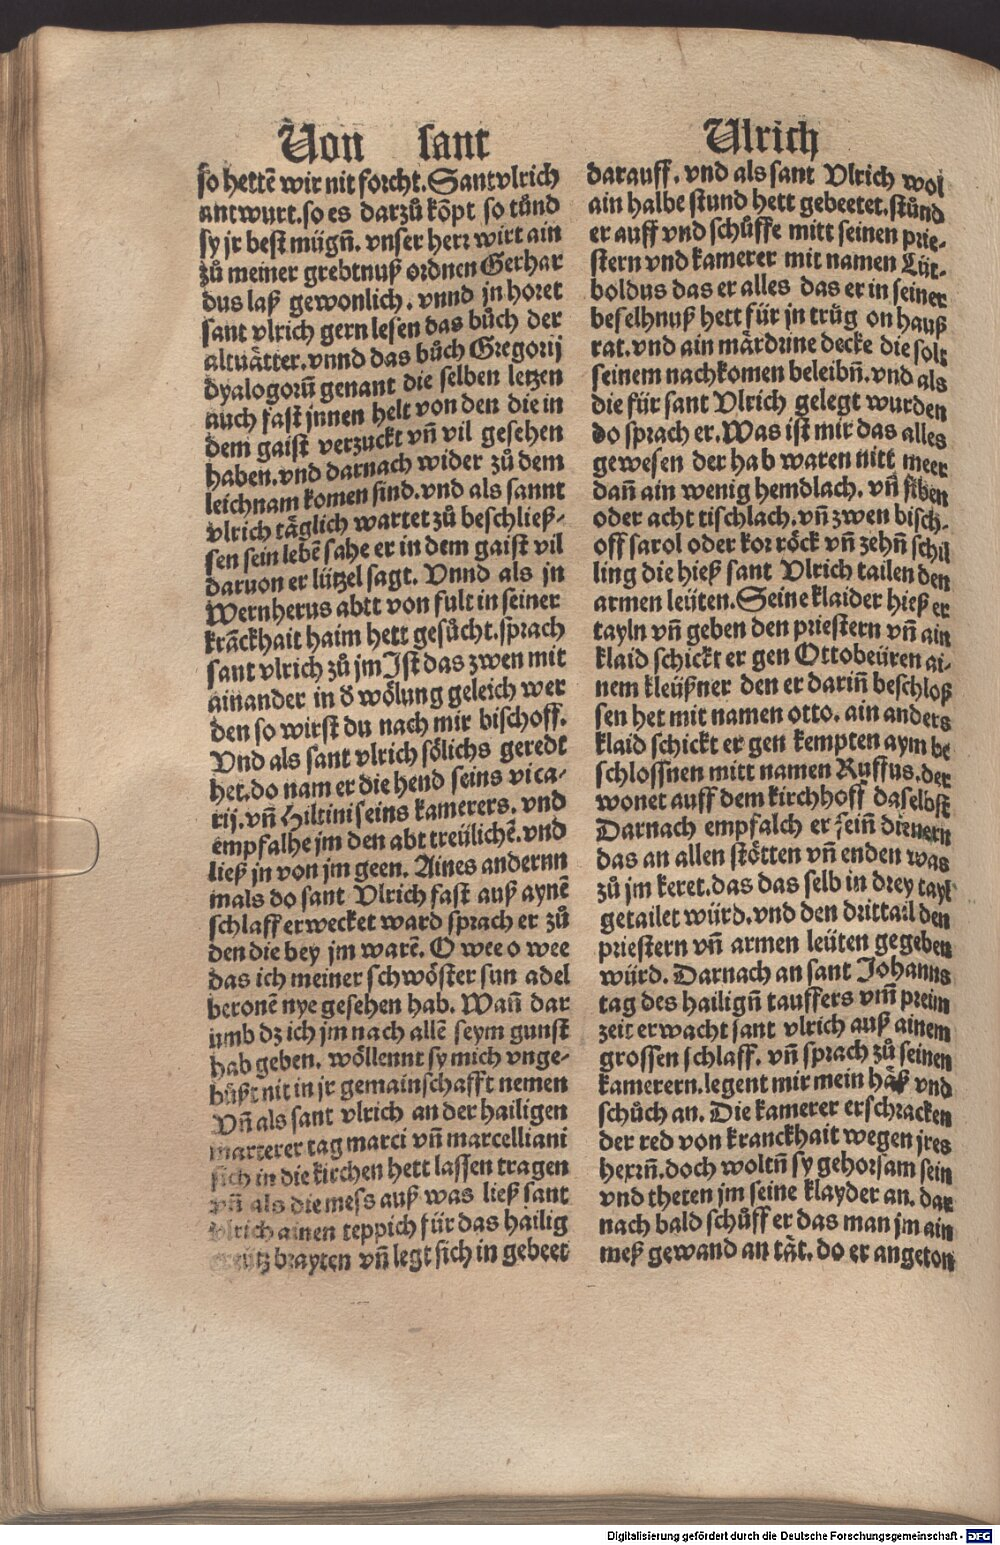 Von sant Ulrich
so hettē wir nit forcht. Sant vlrich
antwurt. so es darzů kōpt so tůnd
sy jr best mügñ. vnser herr wirt ain
zů meiner grebtnuß ordnen Gerhar
dus laß gewonlich. vnnd jn horet
sant vlrich gern lesen das bůch der
altuåtter. vnnd das bůch Gregorij
dyalogorū genant die selben letzen
auch fast jnnen helt von den die in
dem gaist verzuckt vñ vil gesehen
haben. vnd darnach wider zů dem
leichnam komen sind. vnd als sannt
vlrich tåglich wartet zů beschließ-
sen sein lebē sahe er in dem gaist vil
daruon er lützel sagt. Vnnd als jn
Wernherus abtt von fult in seiner
krāckhait haim hett gesůcht. sprach
sant vlrich zů jm Jst das zwen mit
ainander in d wölung geleich wer
den so wirst du nach mir bischoff.
Vnd als sant vlrich sölichs geredt
het. do nam er die hend seins vica-
rij. vñ Hiltini seins kamerers. vnd
empfalhe jm den abt treülichē. vnd
ließ jn von jm geen. Aines andernn
mals do sant Vlrich fast auß aynē
schlaff erwecket ward sprach er zů
den die bey jm warē. O wee o wee
das ich meiner schwöster sun adel
beronē nye gesehen hab. Wañ dar
umb dz ich jm nach allē seym gunst
hab geben. wöllennt sy mich vnge-
bůßt nit in jr gemainschafft nemen
Vñ als sant vlrich an der hailigen
marterer tag marci vñ marcelliani
sich in die kirchen hett lassen tragen
vñ als die mess auß was ließ sant
vlrich ainen teppich für das hailig
creütz brayten vñ legt sich in gebeet
darauff. vnd als sant Vlrich wol
ain halbe stund hett gebeetet. stůnd
er auff vnd schůffe mitt seinen prie-
stern vnd kamerer mit namen Lüt-
boldus das er alles das er in seiner
befelhnuß hett für jn trůg on hauß
rat. vnd ain mårdrine decke die solt
seinem nachkomen beleibñ. vnd als
die für sant Vlrich gelegt wurden
do sprach er. Was ist mir das alles
gewesen der hab waren nitt meer
dañ ain wenig hemdlach. vñ siben
oder acht tischlach. vñ zwen bisch-
off sarol oder kor röck vñ zehñ schil
ling die hieß sant Vlrich tailen den
armen leüten. Seine klaider hieß er
tayln vñ geben den priestern vñ ain
klaid schickt er gen Ottobeüren ai-
nem kleüßner den er dariñ beschloß
sen het mit namen otto. ain anders
klaid schickt er gen kempten aym be
schlossnen mitt namen Ruffus. der
wonet auff dem kirchhoff daselbst
Darnach empfalch er seiñ dienern
das an allen stötten vñ enden was
zů jm keret. das das selb in drey tayl
getailet würd. vnd den drittail den
priestern vñ armen leüten gegeben
würd. Darnach an sant Johanns
tag des hailigñ tauffers vm̃ preim
zeit erwacht sant vlrich auß ainem
grossen schlaff. vñ sprach zů seinen
kamerern. legent mir mein håß vnd
schůch an. Die kamerer erschracken
der red von kranckhait wegen jres
herrñ. doch woltñ sy gehorsam sein
vnd theten jm seine klayder an. dar
nach bald schůff er das man jm ain
meß gewand an tåt. do er angeton
Digitalisierung gefördert durch die Deutsche Forschungsgemeinschaft - DFG